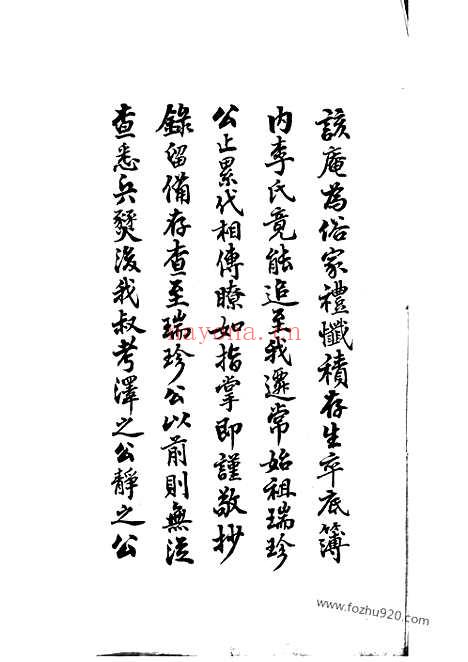 該庵為俗家禮懺積存生卒底簿
内李氏竟能追至我遷常始祖瑞珍
公止累代相傳瞭如指掌即謹敬抄
錄留備存查至瑞珍公以前則無從
查悉兵燹後我叔考澤之公靜之公
nayona.cn
www.fozhu920.com